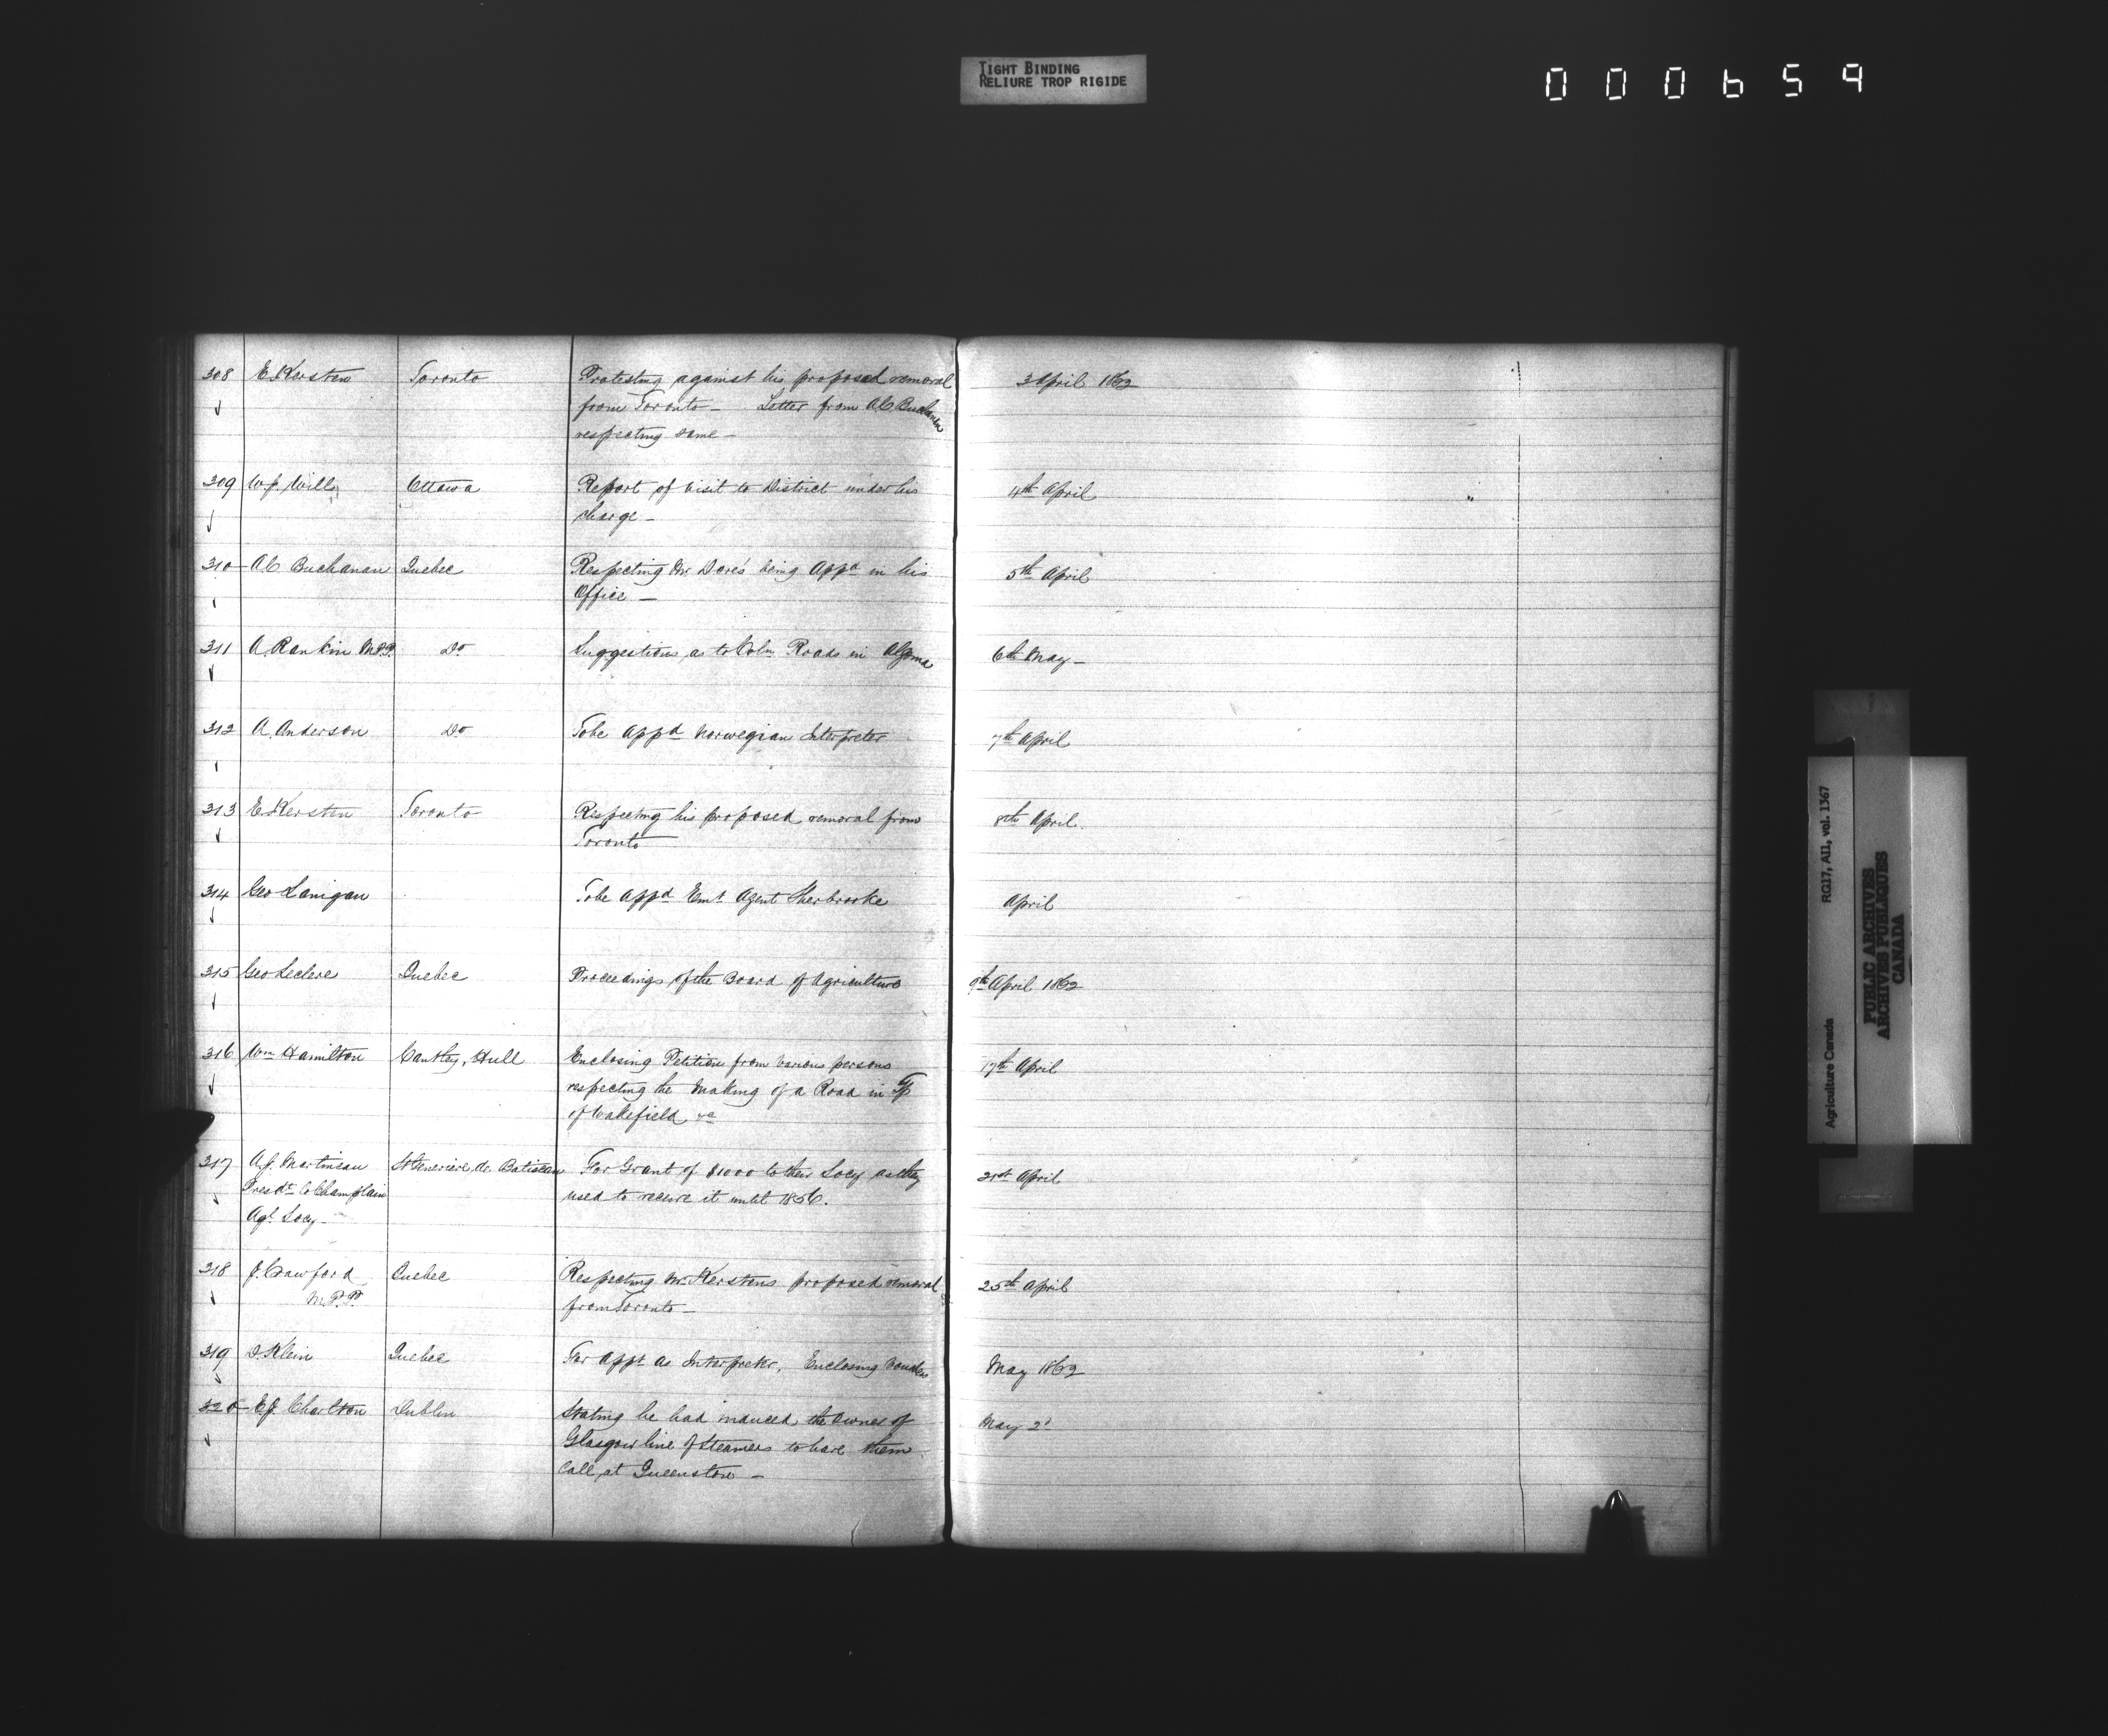 TIGHT BINDING
RELIURE TROP RIGIDE
000659
308 E Kersten Toronto Protesting against his proposed removal 3 April 1862
from Toronto — Letter from AC Buchanan
respecting same —
309 W.J. Wills Ottawa Report of visit to District under his 4th April
charge —
310 AC Buchanan Quebec Respecting Mr Dore's being Appd in his 5th April
Office —
311 A. Rankin M.P.P. Do Suggestions as to Coln Roads in Algoma 6th May —
312 A. Anderson Do To be Appd Norwegian Interpreter 7th April
313 E Kersten Toronto Respecting his proposed removal from 8th April
Toronto
314 Geo Lanigan To be Appd Emt Agent Sherbrooke April
315 Geo Leclere Quebec Proceedings of the Board of Agriculture 9th April 1862
316 Wm Hamilton Cantley, Hull Enclosing Petition from various persons 17th April
respecting the making of a Road in Tp
of Wakefield &c
317 A.J. Martineau St Genevieve de Batiscan For Grant of $1000 to their Socy as they 21st April
Presdt Co Champlain used to receive it until 1856.
Agl. Socy —
318 J. Crawford Quebec Respecting Mr Kerstens proposed removal 25th April
M.P.P. from Toronto —
319 D. Klein Quebec For Appt as Interpreter, Enclosing vouchers May 1862
320 E.J. Charlton Dublin Stating he had induced the owner of May 2d
Glasgow line of Steamers to have them
call at Queenston —
Agriculture Canada RG17, AII, vol. 1367
PUBLIC ARCHIVES
ARCHIVES PUBLIQUES
CANADA